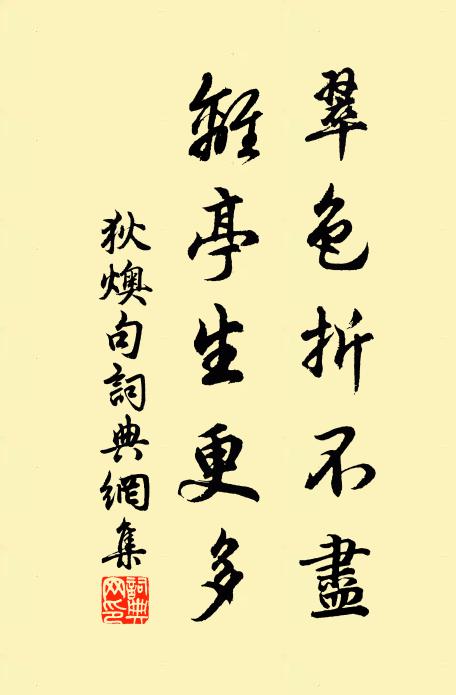 翠色折不盡
離亭生更多
狄燠句詞典網集
詞典網印